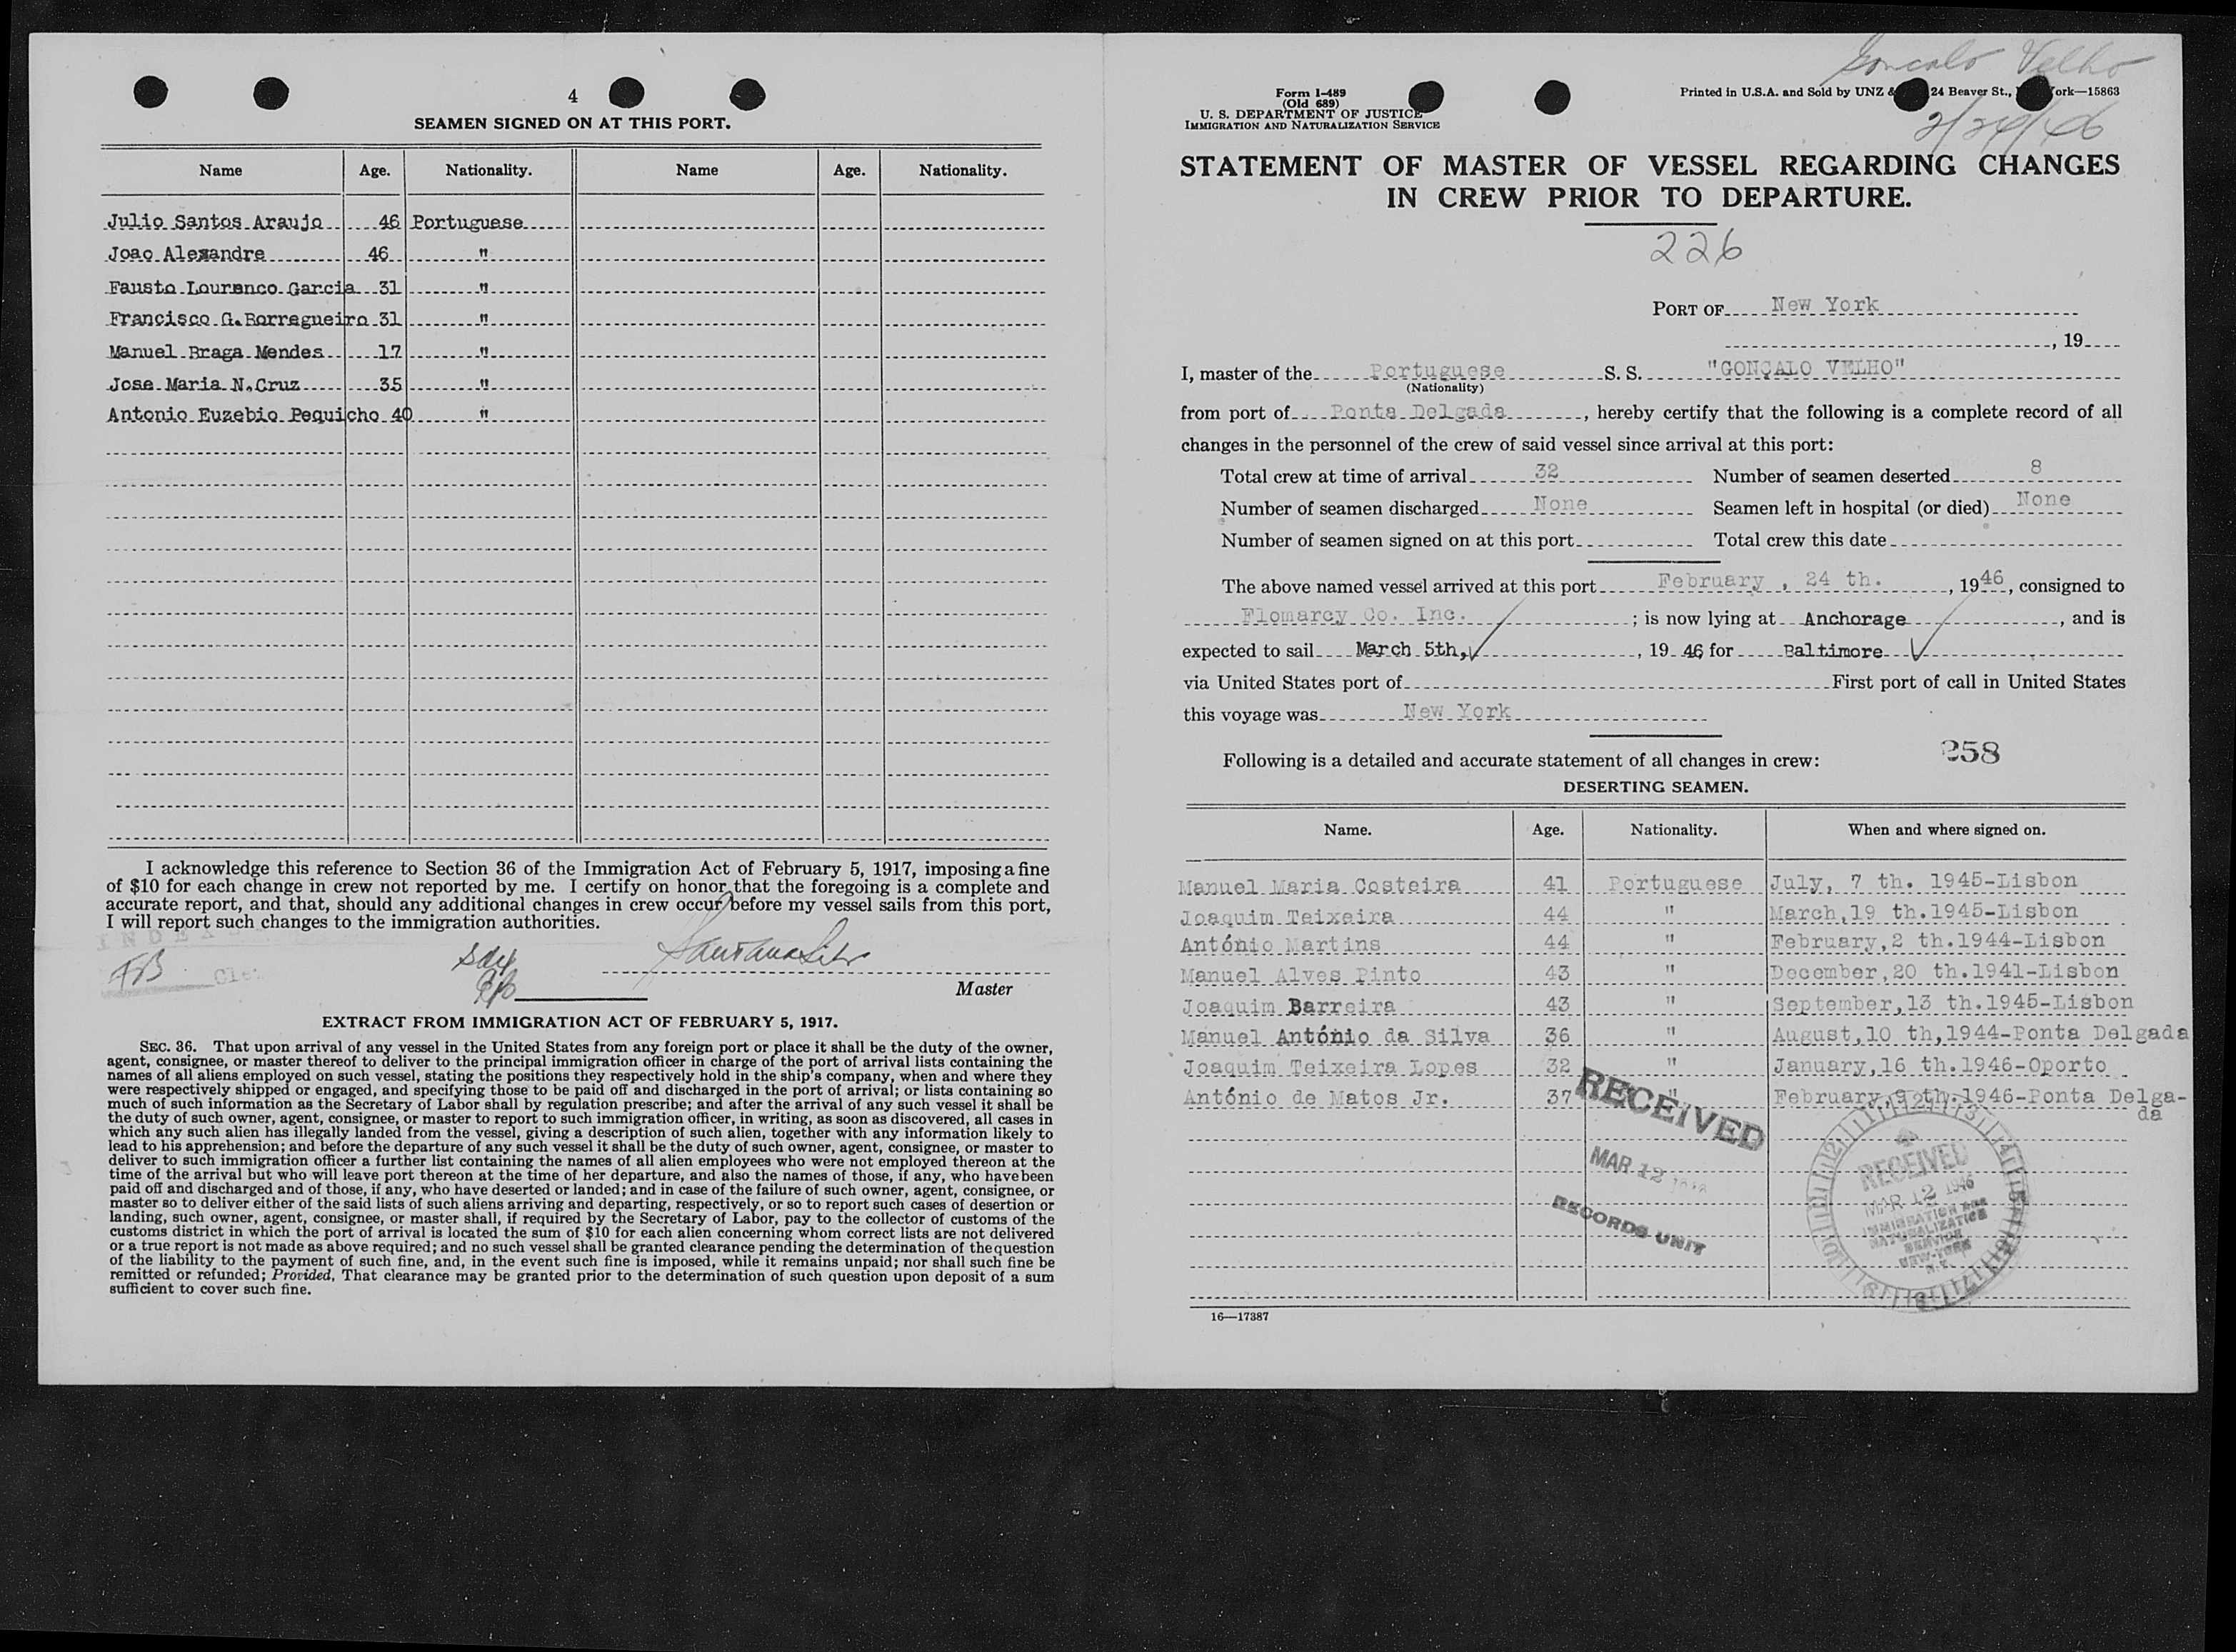 4
SEAMEN SIGNED ON AT THIS PORT.
Name Age. Nationality. Name Age. Nationality.
Julio Santos Araujo 46 Portuguese
Joao Alexandre 46 "
Fausto Lourenco Garcia 31 "
Francisco G.Borregueiro 31 "
Manuel Braga Mendes 17 "
Jose Maria N.Cruz 35 "
Antonio Euzebio Pequicho 40 "
I acknowledge this reference to Section 36 of the Immigration Act of February 5, 1917, imposing a fine
of $10 for each change in crew not reported by me. I certify on honor that the foregoing is a complete and
accurate report, and that, should any additional changes in crew occur before my vessel sails from this port,
I will report such changes to the immigration authorities.
Master
EXTRACT FROM IMMIGRATION ACT OF FEBRUARY 5, 1917.
SEC. 36. That upon arrival of any vessel in the United States from any foreign port or place it shall be the duty of the owner,
agent, consignee, or master thereof to deliver to the principal immigration officer in charge of the port of arrival lists containing the
names of all aliens employed on such vessel, stating the positions they respectively hold in the ship's company, when and where they
were respectively shipped or engaged, and specifying those to be paid off and discharged in the port of arrival; or lists containing so
much of such information as the Secretary of Labor shall by regulation prescribe; and after the arrival of any such vessel it shall be
the duty of such owner, agent, consignee, or master to report to such immigration officer, in writing, as soon as discovered, all cases in
which any such alien has illegally landed from the vessel, giving a description of such alien, together with any information likely to
lead to his apprehension; and before the departure of any such vessel it shall be the duty of such owner, agent, consignee, or master to
deliver to such immigration officer a further list containing the names of all alien employees who were not employed thereon at the
time of the arrival but who will leave port thereon at the time of her departure, and also the names of those, if any, who have been
paid off and discharged and of those, if any, who have deserted or landed; and in case of the failure of such owner, agent, consignee, or
master so to deliver either of the said lists of such aliens arriving and departing, respectively, or so to report such cases of desertion or
landing, such owner, agent, consignee, or master shall, if required by the Secretary of Labor, pay to the collector of customs of the
customs district in which the port of arrival is located the sum of $10 for each alien concerning whom correct lists are not delivered
or a true report is not made as above required; and no such vessel shall be granted clearance pending the determination of the question
of the liability to the payment of such fine, and, in the event such fine is imposed, while it remains unpaid; nor shall such fine be
remitted or refunded; Provided, That clearance may be granted prior to the determination of such question upon deposit of a sum
sufficient to cover such fine.
Goncalo Velho
2/24/46
Form I-489
(Old 689)
U. S. DEPARTMENT OF JUSTICE
IMMIGRATION AND NATURALIZATION SERVICE
Printed in U.S.A. and Sold by UNZ & 24 Beaver St., ork—15863
STATEMENT OF MASTER OF VESSEL REGARDING CHANGES
IN CREW PRIOR TO DEPARTURE.
226
PORT OF New York
, 19
I, master of the Portuguese S. S. "GONÇALO VELHO"
(Nationality)
from port of Ponta Delgada, hereby certify that the following is a complete record of all
changes in the personnel of the crew of said vessel since arrival at this port:
Total crew at time of arrival 32 Number of seamen deserted 8
Number of seamen discharged None Seamen left in hospital (or died) None
Number of seamen signed on at this port Total crew this date
The above named vessel arrived at this port February , 24 th. , 1946, consigned to
Flomarcy Co. Inc. ; is now lying at Anchorage , and is
expected to sail March 5th, , 19 46 for Baltimore
via United States port of First port of call in United States
this voyage was New York
258
Following is a detailed and accurate statement of all changes in crew:
DESERTING SEAMEN.
Name. Age. Nationality. When and where signed on.
Manuel Maria Costeira 41 Portuguese July, 7 th. 1945-Lisbon
Joaquim Teixeira 44 " March,19 th.1945-Lisbon
António Martins 44 " February,2 th.1944-Lisbon
Manuel Alves Pinto 43 " December,20 th.1941-Lisbon
Joaquim Barreira 43 " September,13 th.1945-Lisbon
Manuel António da Silva 36 " August,10 th,1944-Ponta Delgada
Joaquim Teixeira Lopes 32 " January,16 th.1946-Oporto
António de Matos Jr. 37 " February,9 th.1946-Ponta Delga-
da
RECEIVED
MAR 12 1946
RECORDS UNIT
RECEIVED
MAR 12 1946
IMMIGRATION AND
NATURALIZATION
SERVICE
NEW-YORK
N.Y.
16—17387